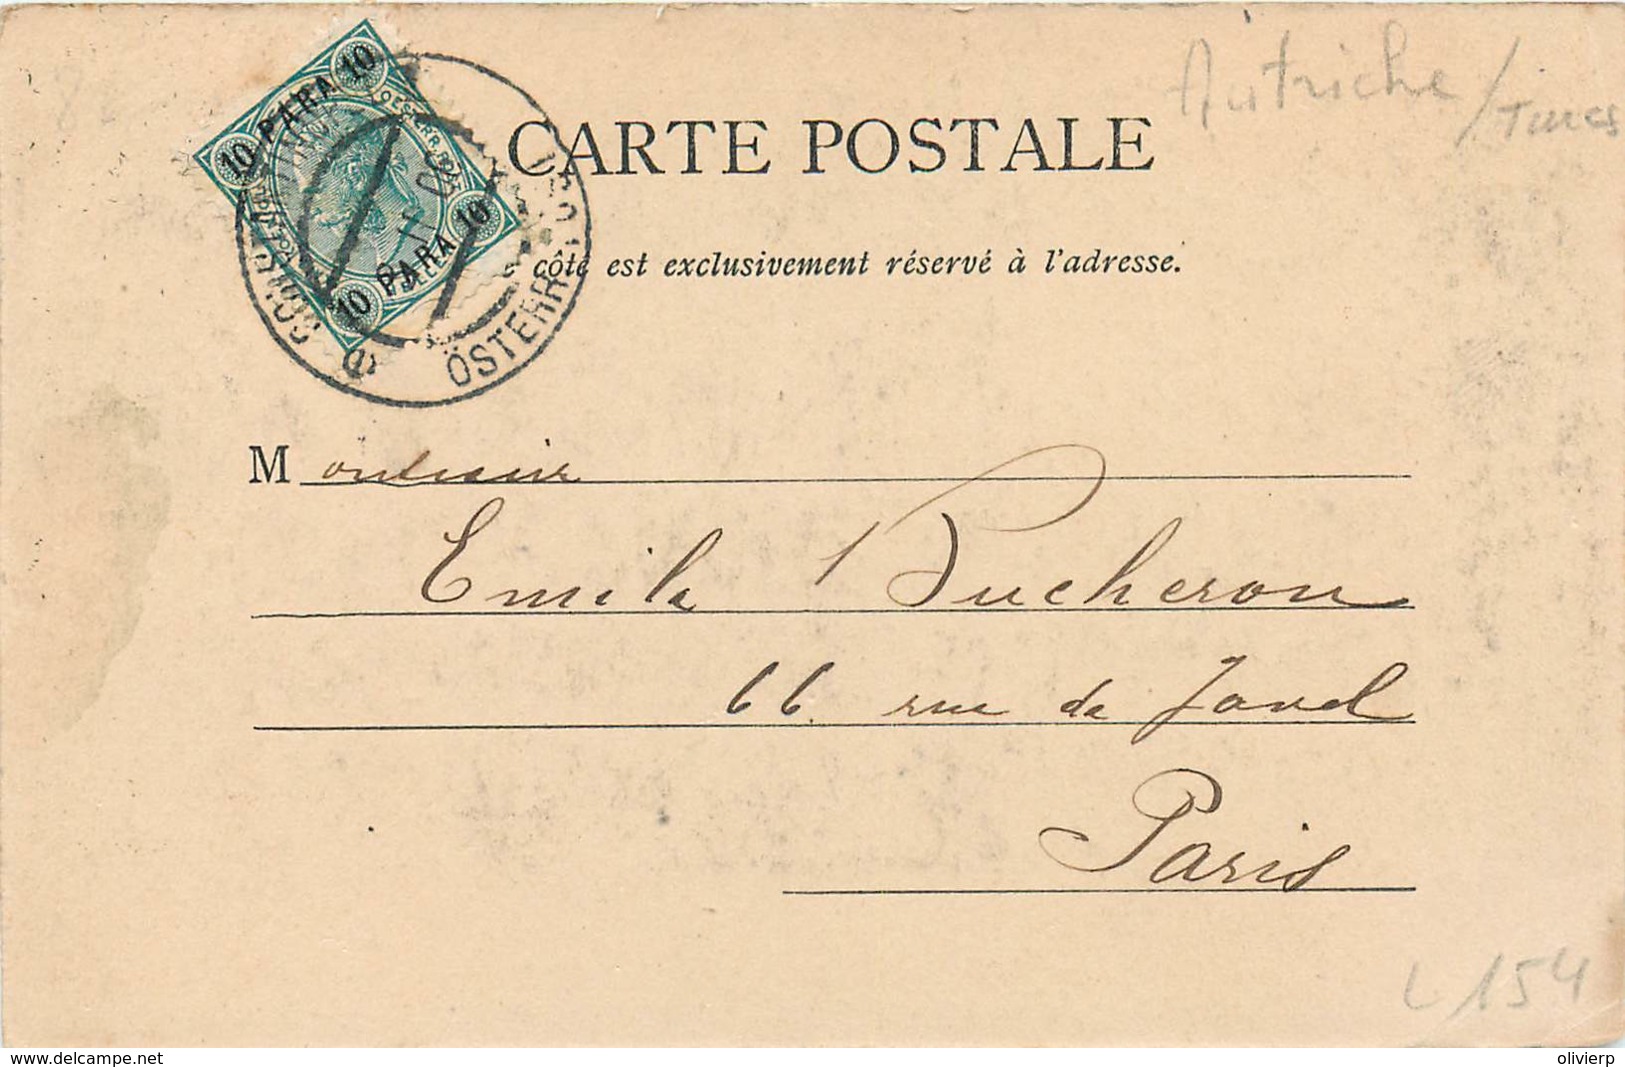 Autriche / Turcs
CARTE POSTALE
10 PARA 10
10 PARA 10
ÖSTERR.
côté est exclusivement réservé à l'adresse.
Monsieur
Emile Pucheron
66 rue de Javel
Paris
L 154
www.delcampe.net
olivierp